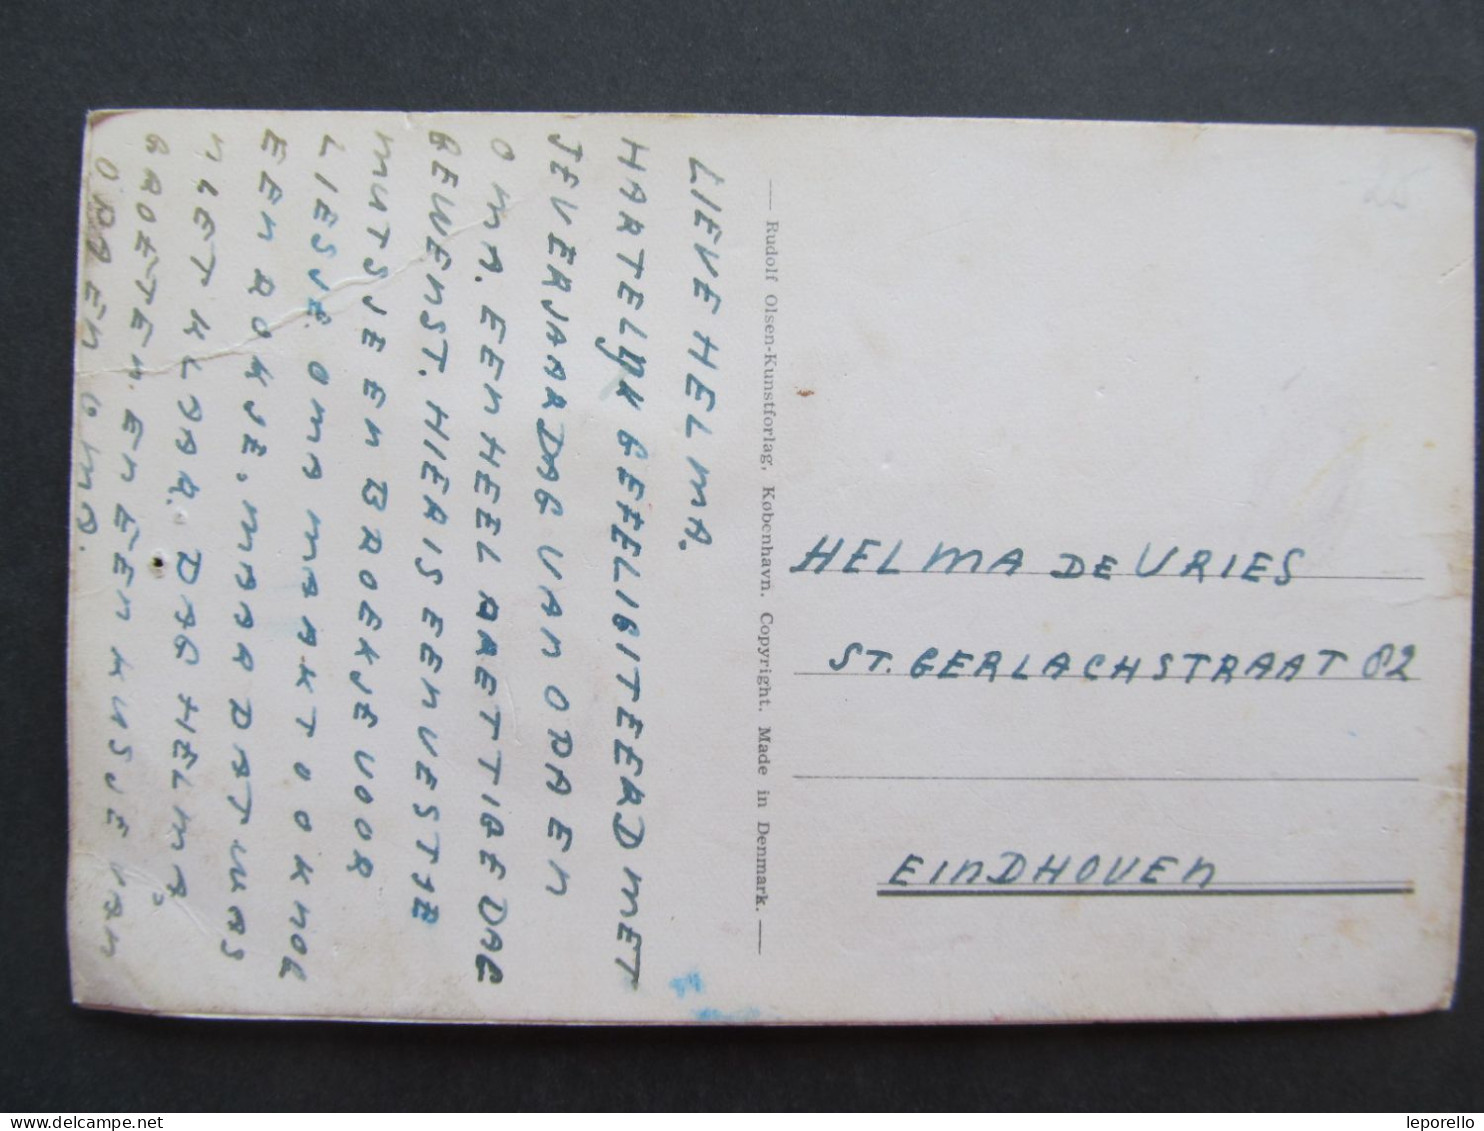 LIEVE HELMA.
HARTELYK GEFELIGITEERD MET
JE VERJAARDAG VAN OPA EN
OMA. EEN HEEL AARETTIGE DAG
GEWENST. HIER IS EEN VESTJE
MUTSJE EN BROEKJE VOOR
LIESJE. OMA MAAKT OOK NOG
EEN ROKJE. MAAR DAT WAS
NIET KLAAR. DAG HELMA
GROETEN. EN EEN KUSJE VAN
OPA EN OMA.
Rudolf Olsen-Kunstforlag, København. Copyright. Made in Denmark.
25
HELMA DE VRIES
ST. GERLACHSTRAAT 82
EINDHOVEN
www.delcampe.net
leporello